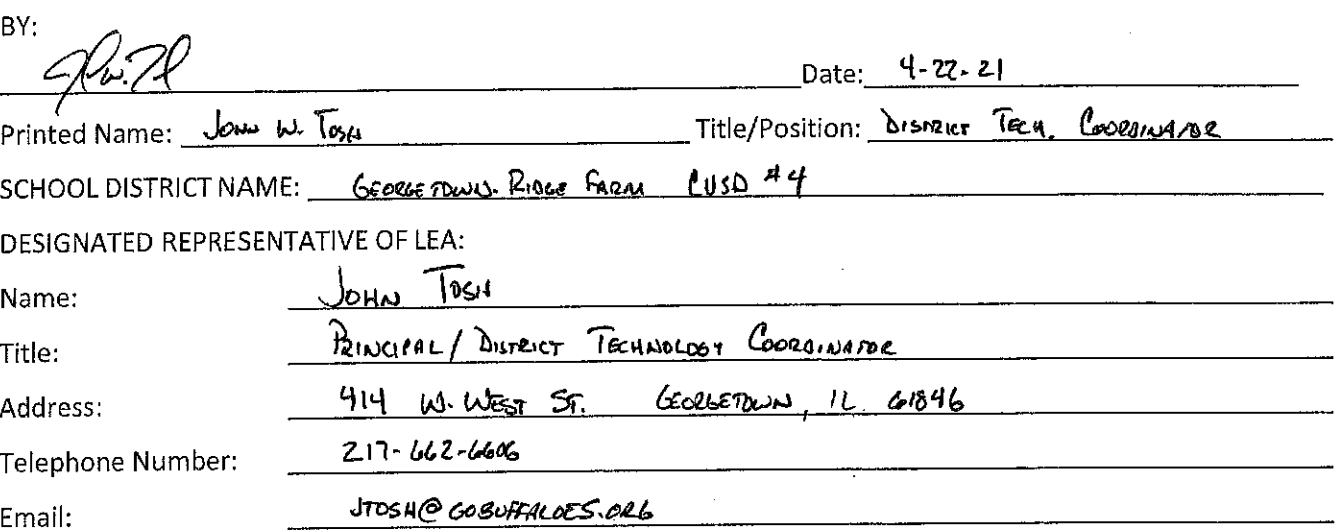 BY:
Date: 4-22-21
Printed Name: John W. Tosh Title/Position: District Tech. Coordinator
SCHOOL DISTRICT NAME: Georgetown-Ridge Farm CUSD #4
DESIGNATED REPRESENTATIVE OF LEA:
Name: John Tosh
Title: Principal/District Technology Coordinator
Address: 414 W. West St. Georgetown, IL 61846
Telephone Number: 217-662-6606
Email: JTOSH@GOBUFFALOES.ORG